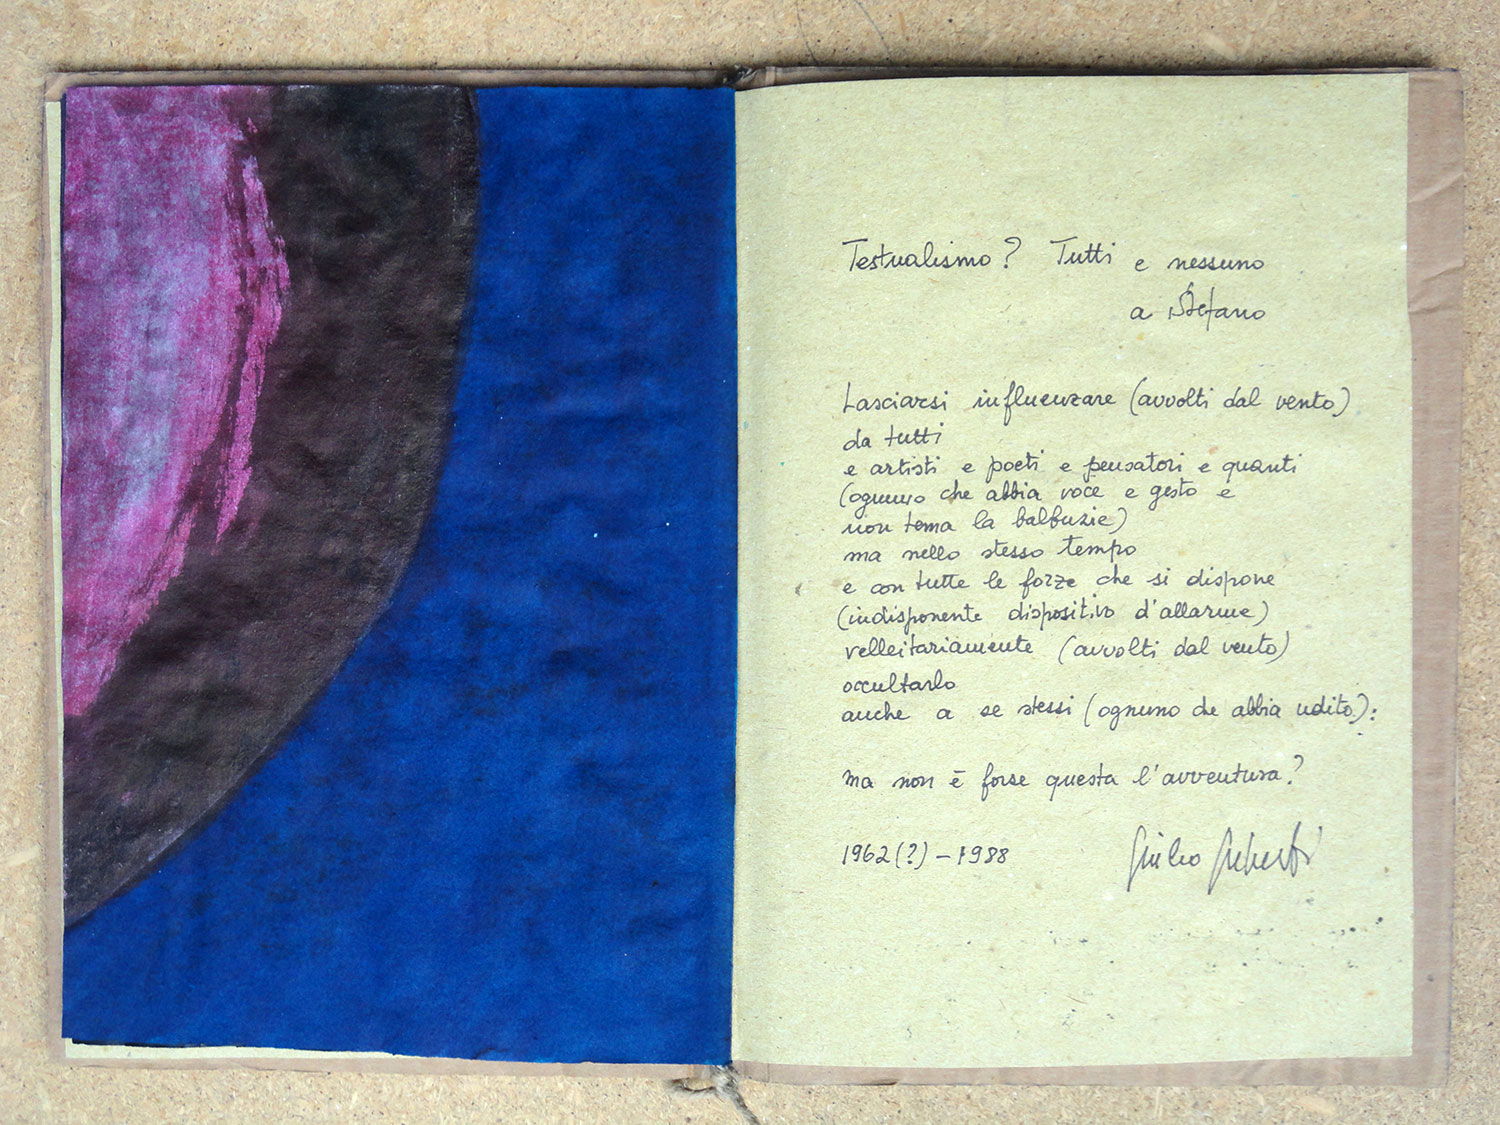 Testualismo? Tutti e nessuno
a Stefano
Lasciarsi influenzare (avvolti dal vento)
da tutti
e artisti e poeti e pensatori e quanti
(ognuno che abbia voce e gesto e
non tema la balbuzie)
ma nello stesso tempo
e con tutte le forze che si dispone
(indisponente dispositivo d'allarme)
velleitariamente (avvolti dal vento)
occultarlo
anche a se stessi (ognuno che abbia udito):
ma non è forse questa l'avventura?
1962(?) – 1988 Giulio